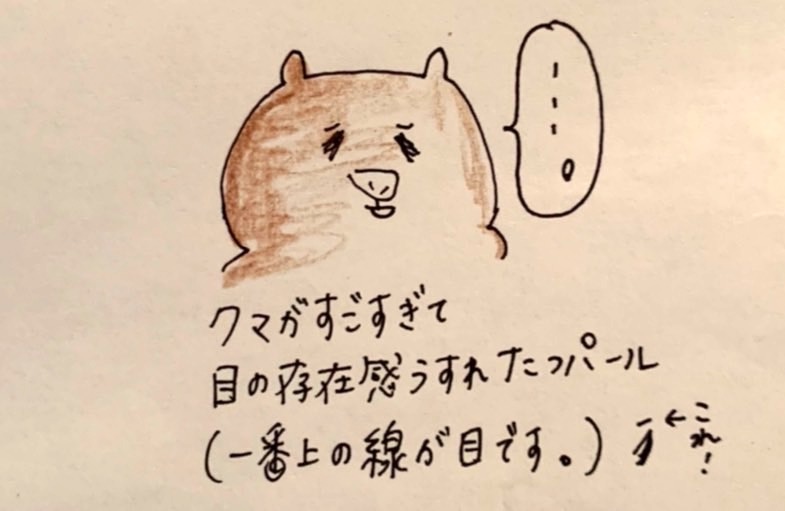 ---。
クマがすごすぎて
目の存在感うすれたっパール
(一番上の線が目です。) ←これ!